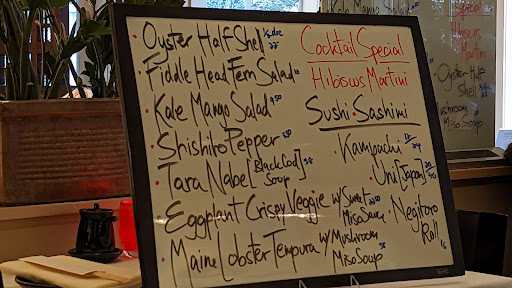 Oyster Half Shell 1/2 doz
Fiddle Head Fern Salad
Kale Mango Salad
Shishito Pepper
Tara Nabe [Black Cod Soup]
Eggplant Crispy Veggie w/ Sweet Miso Sauce
Maine Lobster Tempura w/ Mushroom Miso Soup
Cocktail Special
Hibiscus Martini
Sushi · Sashimi
Kampachi
Uni [Japan]
Negitoro Roll
Hibiscus
Martini
Oyster Half
Shell
Mushroom
Miso Soup